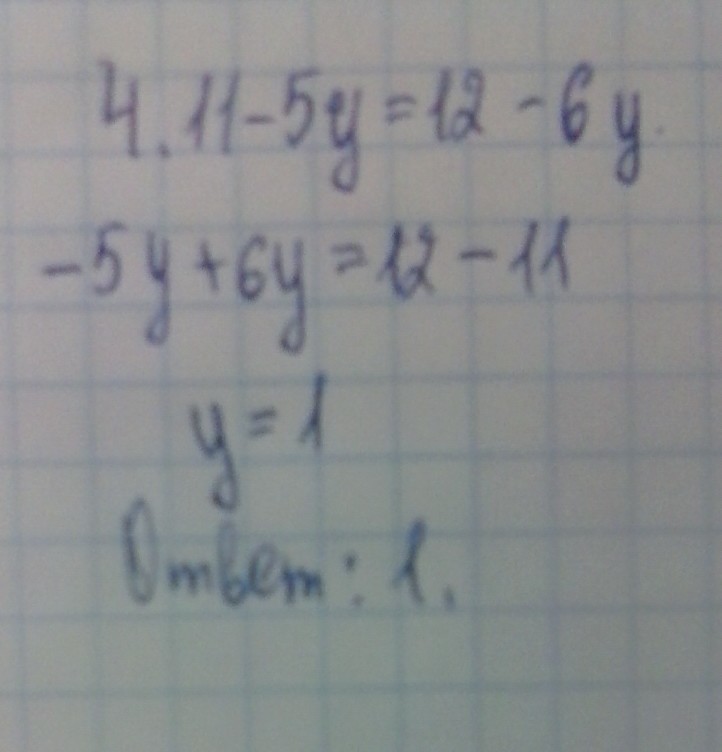 4. 11-5y=12-6y.
-5y+6y=12-11
y=1
Ответ: 1.